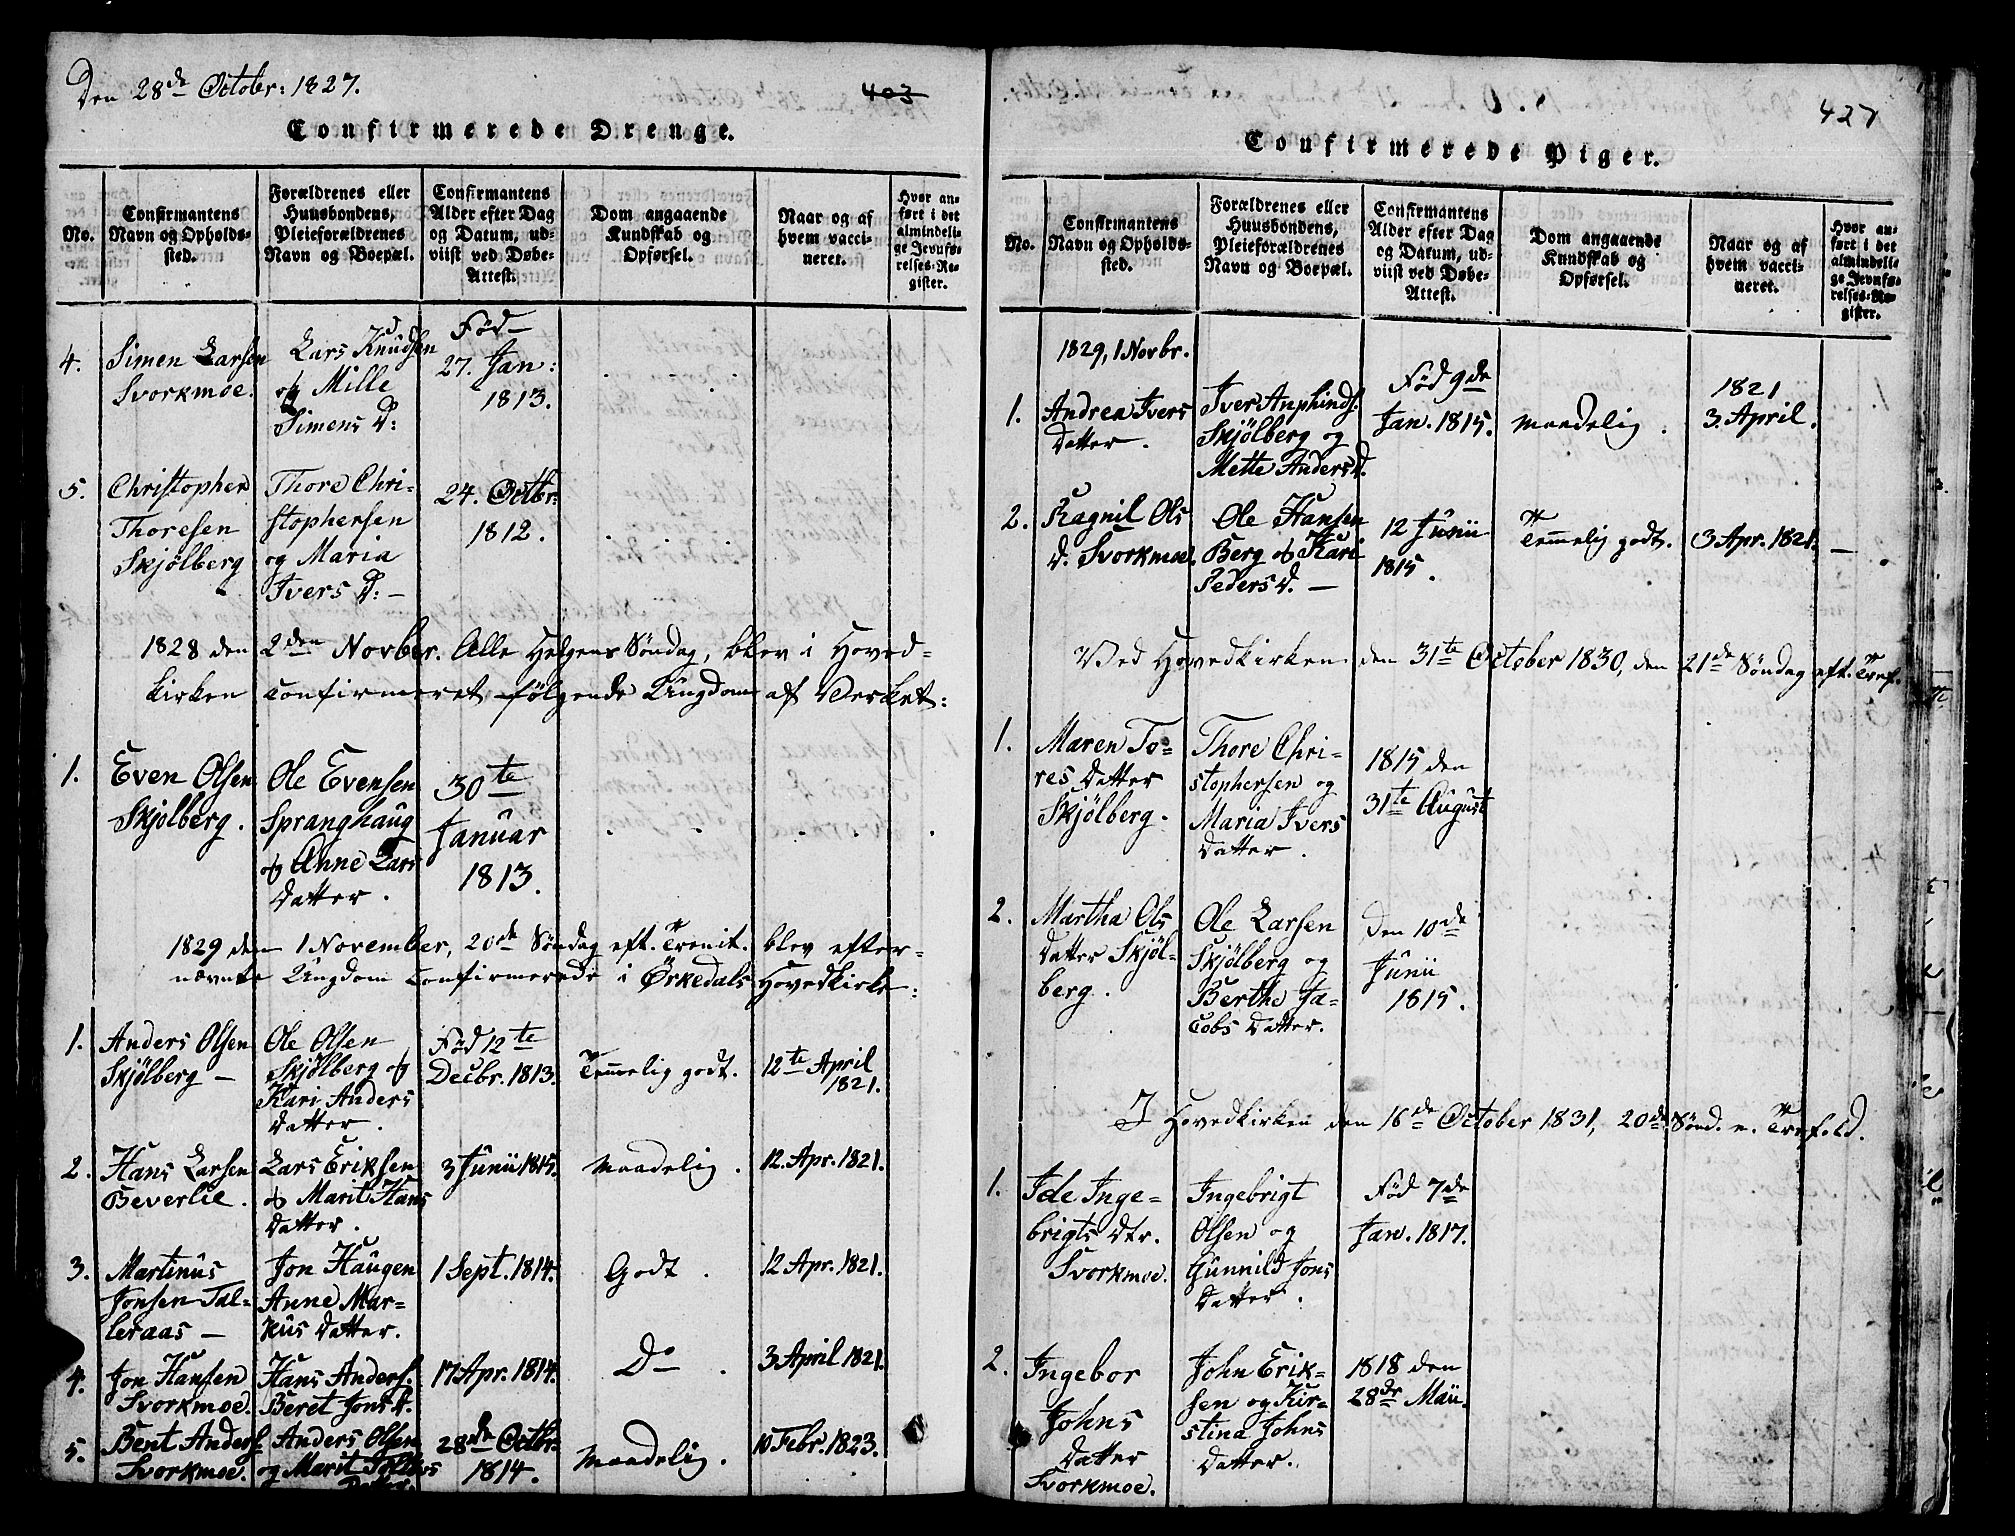 Den 28de October: 1827.
403
Confirmerede Drenge.
No.
Confirmantens
Navn og Opholds-
sted.
Forældrenes eller
Huusbondens,
Pleieforældrenes
Navn og Boepæl.
Confirmantens
Alder efter Dag
og Datum, ud-
viist ved Døbe-
Attest.
Dom angaaende
Kundskab og
Opførsel.
Naar og af
hvem vacci-
neret.
Hvor an-
ført i det
almindeli-
ge Jevnfø-
relses-Re-
gister.
4.
Simen Larsen
Svorkmoe.
Lars Knudsen
og Mille
Simens D:
Fød
27. Jan:
1813.
5.
Christopher
Thoresen
Skjölberg
Thore Chri-
stophersen
og Maria
Ivers D: —
24. Octbr:
1812.
1828 den 2den Novber. Alle Helgens Söndag, blev i Hoved-
kirken confirmeret følgende Ungdom af Verket:
1.
Even Olsen
Skjölberg.
Ole Evensen
Spranghaug
og Anne Lars
Datter.
30te
Januar
1813.
1829 den 1 November, 20de Söndag eft. Trinit. blev efter-
nævnte Ungdom Confirmerede i Örkedals Hovedkirke:
1.
Anders Olsen
Skjölberg —
Ole Olsen
Skjölberg og
Kari Anders
Datter.
Fød 12te
Decbr. 1813.
Temmelig godt.
12te April
1821.
2.
Hans Larsen
Beverlie.
Lars Eriksen
og Marit Hans
Datter.
3 Junii 1815.
Maadelig.
12. Apr. 1821.
3.
Martinus
Jonsen Tal-
leraas —
Jon Haugen
Anne Mar-
kus Datter.
1 Sept. 1814.
Godt.
12 Apr. 1821.
4.
Jon Hansen
Svorkmoe.
Hans Anders.
Beret Jons D.
17 Apr. 1814.
Do
3 April 1821.
5.
Bent Anders.
Svorkmoe.
Anders Olsen
og Marit
28de Octbr:
1814.
Maadelig.
10 Febr. 1823.
427
Confirmerede Piger.
No.
Confirmantens
Navn og Opholds-
sted.
Forældrenes eller
Huusbondens,
Pleieforældrenes
Navn og Boepæl.
Confirmantens
Alder efter Dag
og Datum, ud-
viist ved Døbe-
Attest.
Dom angaaende
Kundskab og
Opførsel.
Naar og af
hvem vacci-
neret.
Hvor an-
ført i det
almindeli-
ge Jevnfø-
relses-Re-
gister.
1829, 1 Novbr.
1.
Andrea Ivers
Datter.
Iver Anphinds.
Skjölberg og
Mette Anders D.
Fød 9de
Jan. 1815.
Maadelig.
1821
3. April.
2.
Ragnil Ols
D. Svorkmoe.
Ole Hansen
Berg og Kari
Peders D. —
12 Junii
1815.
Temmelig godt.
3 Apr. 1821.
—
Ved Hovedkirken den 31te October 1830, den 21de Söndag eft. Tref.
1.
Maren To-
res Datter
Skjölberg.
Thore Chri-
stophersen og
Maria Ivers
Datter.
1815 den
31te August
2.
Martha Ols
Datter Skjöl-
berg.
Ole Larsen
Skjölberg og
Berthe Ja-
cobs Datter.
Den 10de
Junii
1815.
I Hovedkirken den 16de October 1831, 20de Sönd. e. Trefold.
1.
Ide Inge-
brigts Dtr.
Svorkmoe.
Ingebrigt
Olsen og
Gunnild Jons
Datter.
Fød 7de
Jan. 1817.
2.
Ingebor
Johns
Datter
Svorkmoe.
John Erik-
sen og Kir-
stina Johns
Datter.
1818 den
28de Maii.